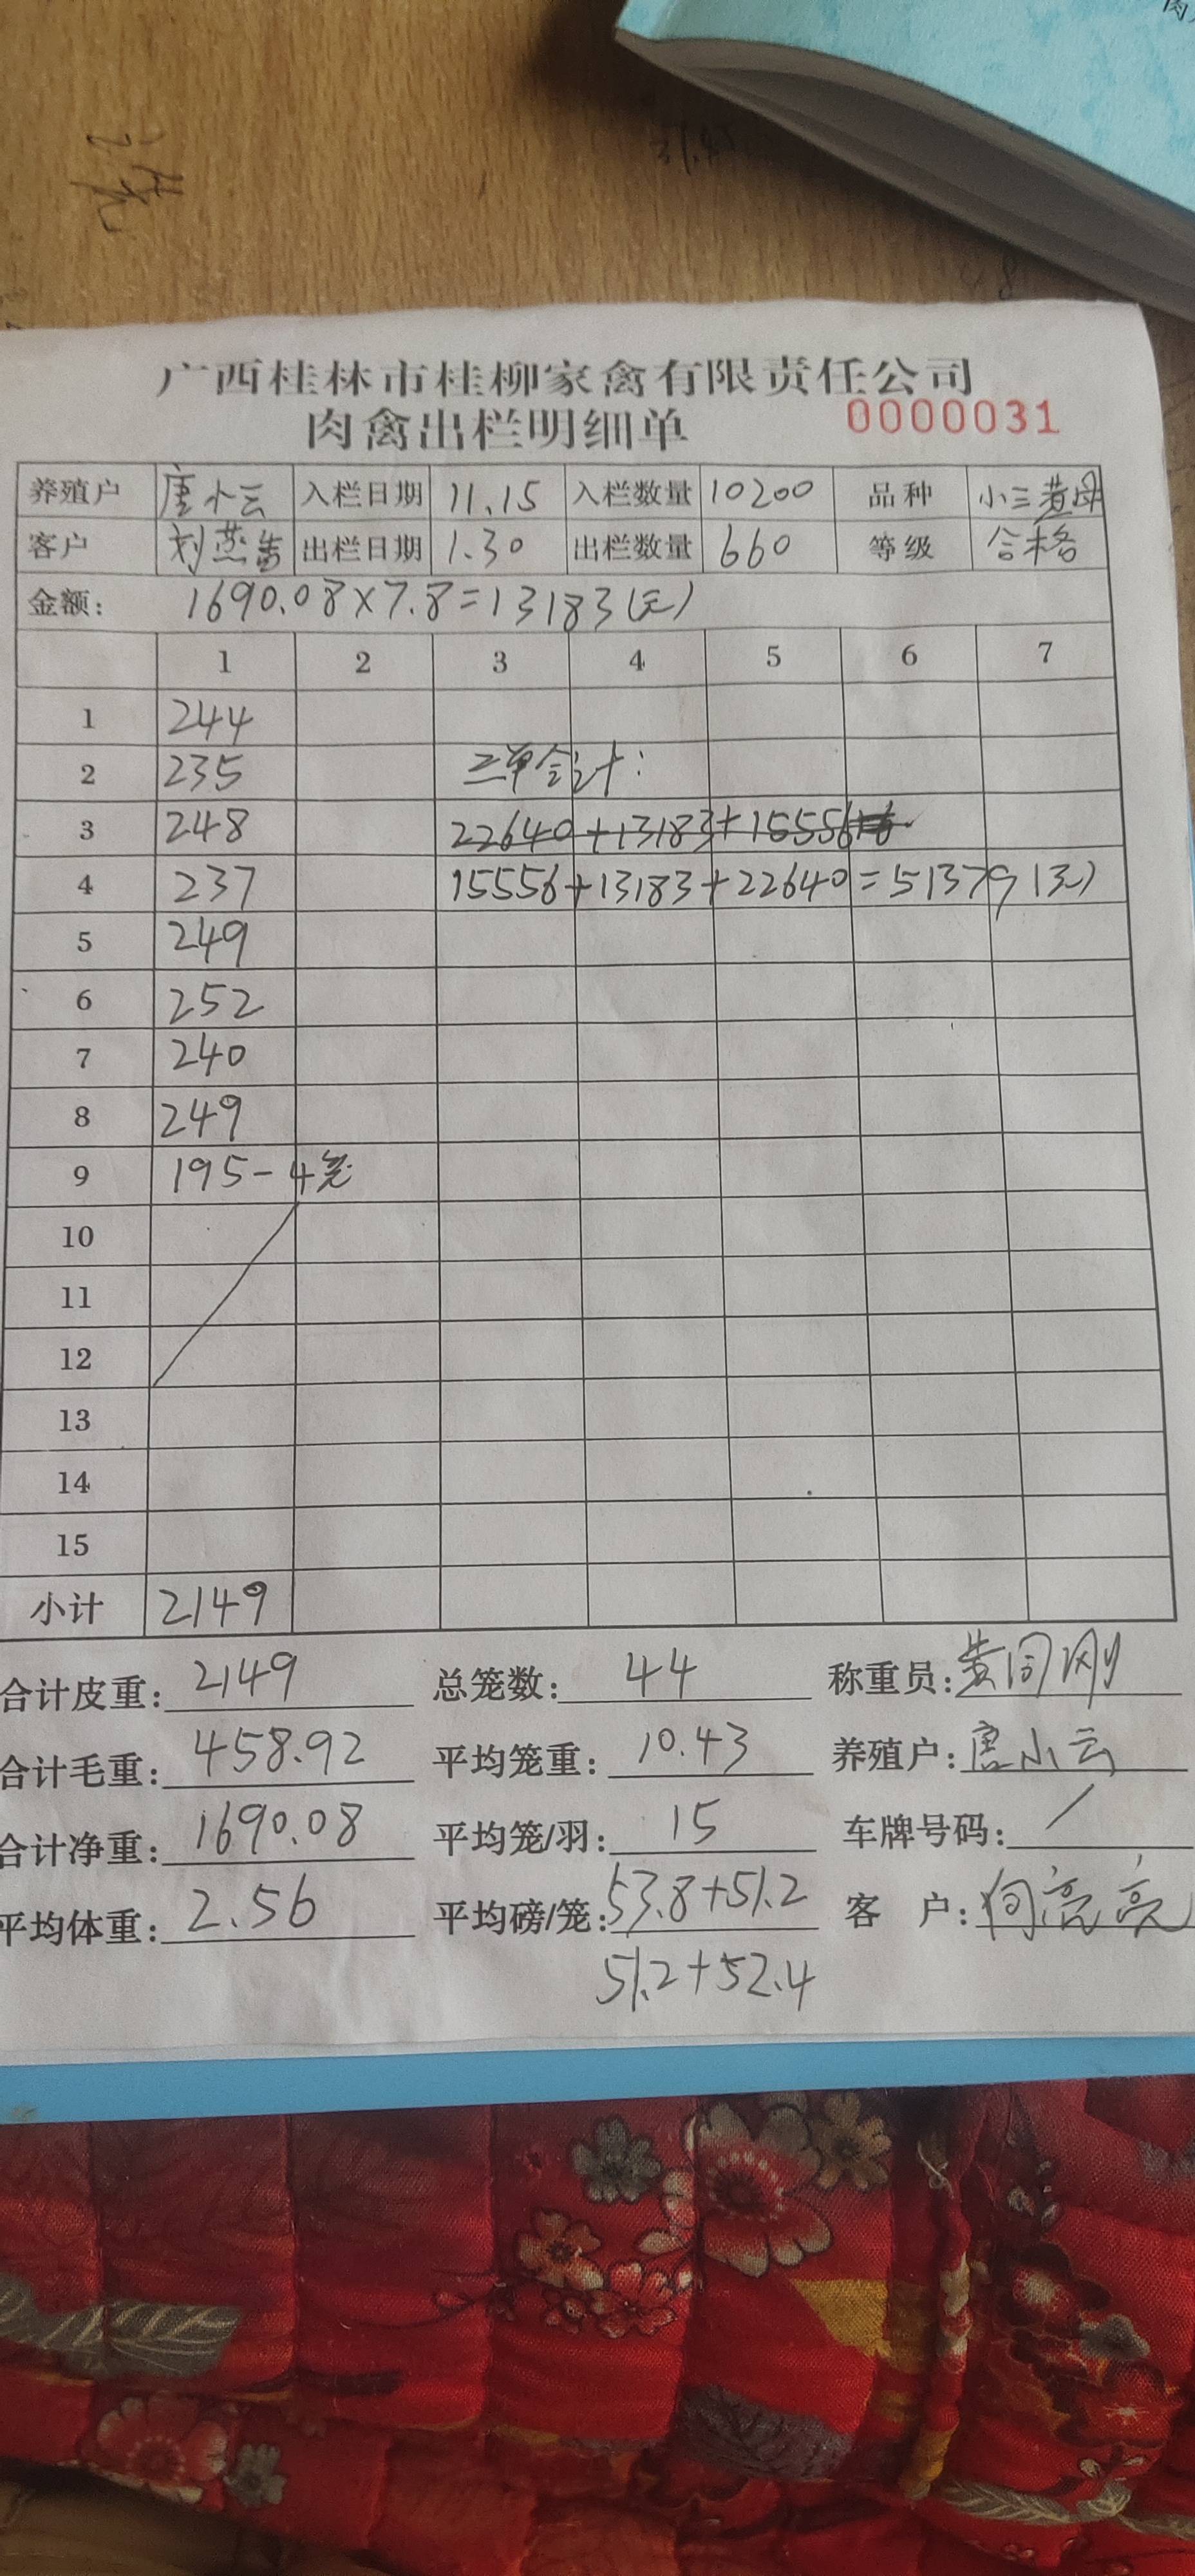 广西桂林市桂柳家禽有限责任公司
肉禽出栏明细单 0000031
养殖户 唐小云 入栏日期 11.15 入栏数量 10200 品种 小三黄母
客户 刘燕 出栏日期 1.30 出栏数量 660 等级 合格
金额: 1690.08×7.8=13183(元)
1 2 3 4 5 6 7
1 244
2 235 三单合计:
3 248 22640+13183+15556
4 237 15556+13183+22640=51379(元)
5 249
6 252
7 240
8 249
9 195-4笼
10
11
12
13
14
15
小计 2149
合计皮重: 2149 总笼数: 44 称重员: 黄同刚
合计毛重: 458.92 平均笼重: 10.43 养殖户: 唐小云
合计净重: 1690.08 平均笼/羽: 15 车牌号码: /
平均体重: 2.56 平均磅/笼: 53.8+51.2 客户: 何亮亮
51.2+52.4